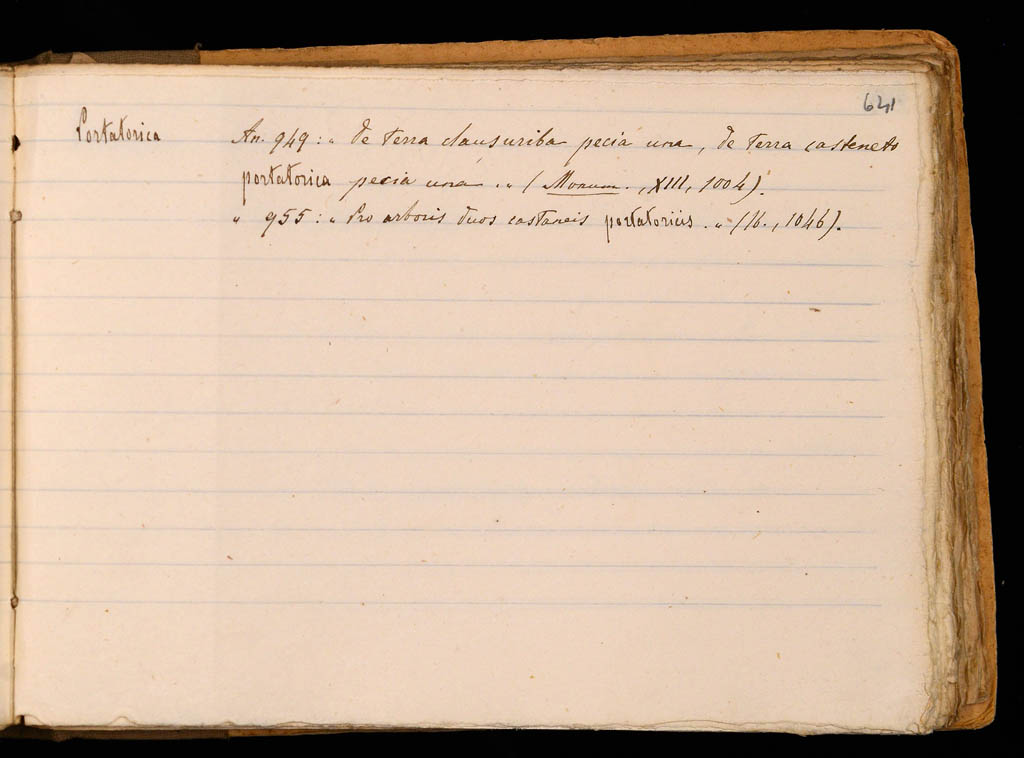 641
Portatorica An. 949 : " de terra clausuriba pecia una, de terra casteneto
portatorica pecia una . " ( Monum. , XIII, 1004).
" 955 : " Pro arboris duos castaneis portatoriciis . " (Ib., 1046).